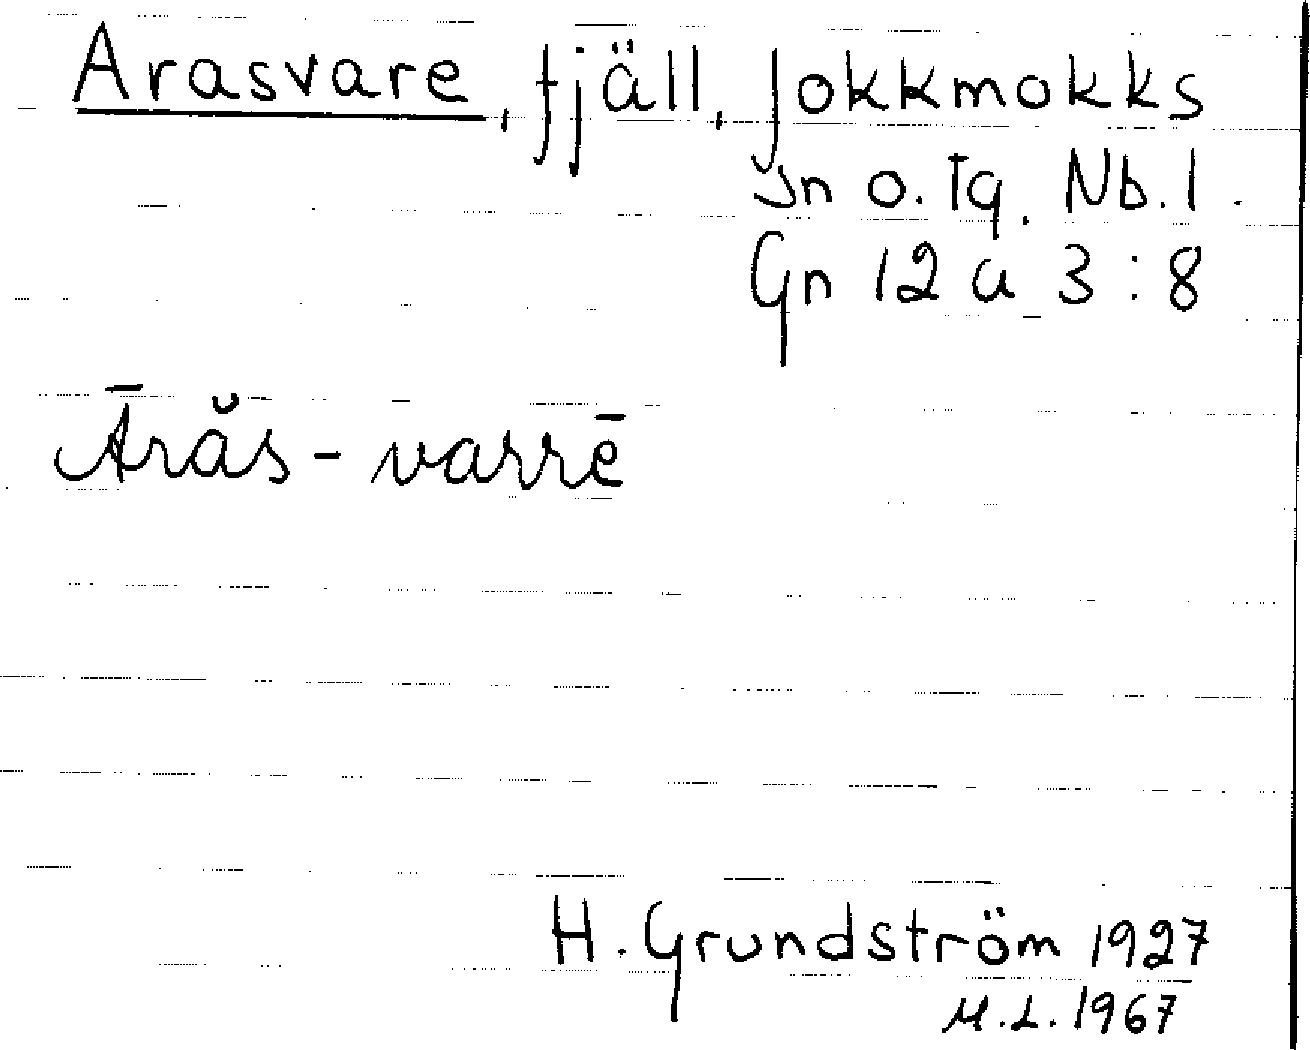 Arasvare, fjäll, Jokkmokks
Jn o. tg. Nb. l.
Gn 12 a 3:8
Ārăs-varrē
H. Grundström 1927
M.L. 1967